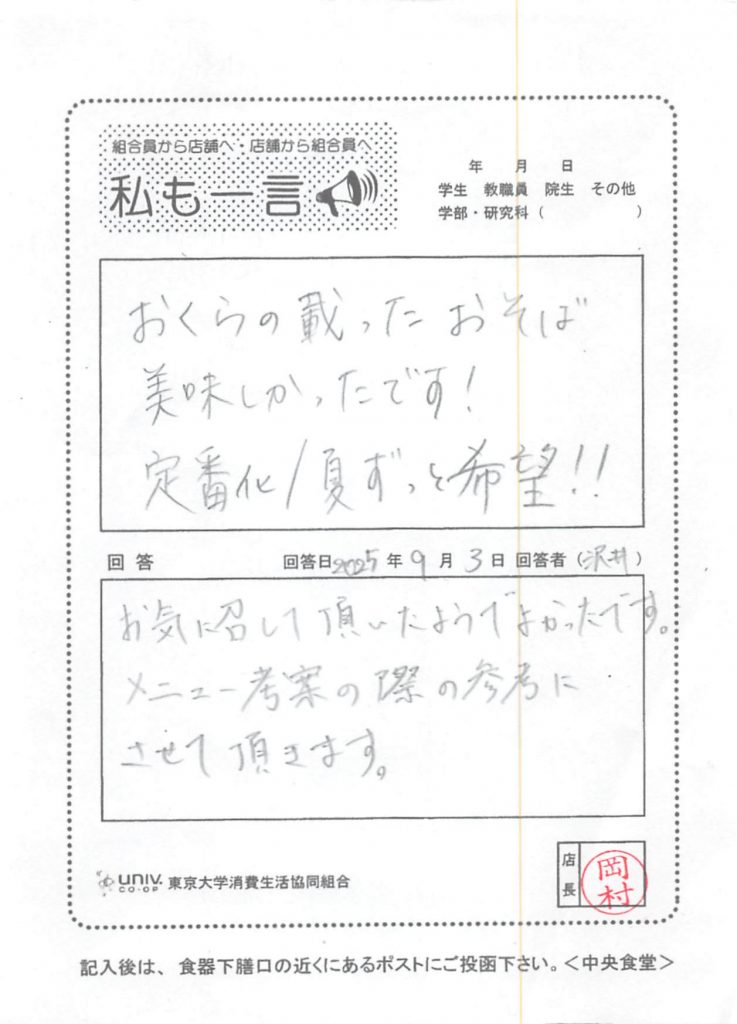 組合員から店舗へ・店舗から組合員へ
私も一言
年 月 日
学生 教職員 院生 その他
学部・研究科( )
おくらの載ったおそば
美味しかったです!
定番化/夏ずっと希望!!
回答 回答日2025年9月3日 回答者(沢井)
お気に召して頂いたようでよかったです。
メニュー考案の際の参考に
させて頂きます。
店長
岡村
UNIV.
CO-OP
東京大学消費生活協同組合
記入後は、食器下膳口の近くにあるポストにご投函下さい。<中央食堂>